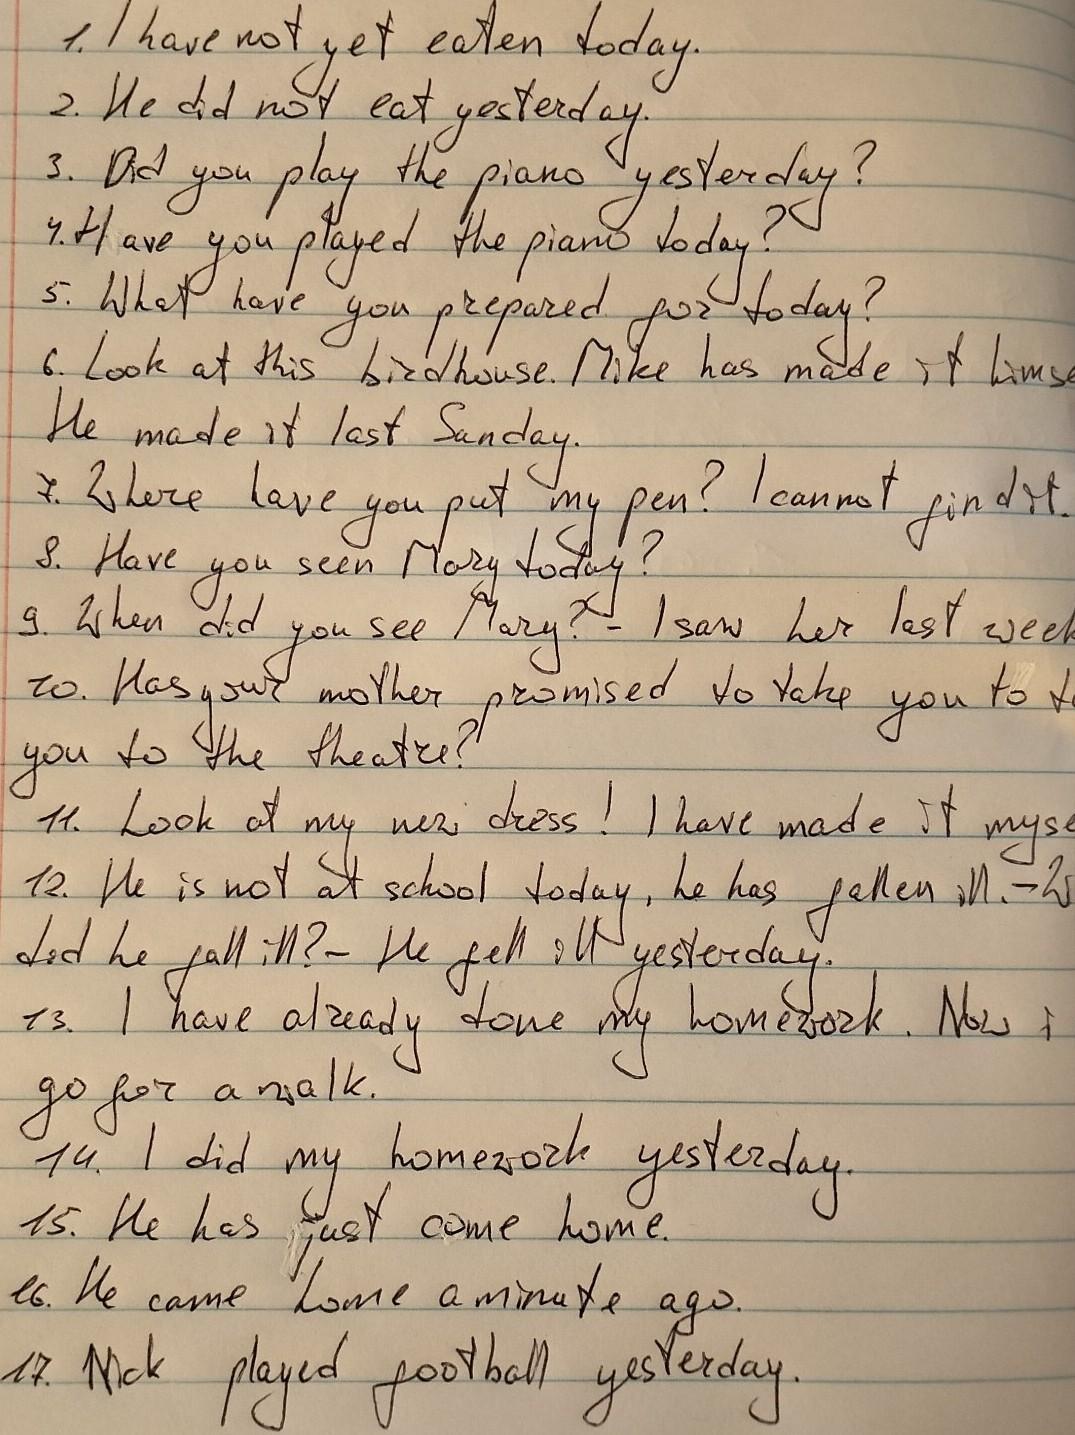 1. I have not yet eaten today.
2. He did not eat yesterday.
3. Did you play the piano yesterday?
4. Have you played the piano today?
5. What have you prepared for today?
6. Look at this birdhouse. Mike has made it himse
He made it last Sanday.
7. Where have you put my pen? I cannot find it.
8. Have you seen Mary today?
9. When did you see Mary? - I saw her last week
10. Has your mother promised to take you to t
you to the theatre?
11. Look at my new dress! I have made it myse
12. He is not at school today, he has fallen ill. - W
did he fall ill? - He fell ill yesterday.
13. I have already done my homework. Now i
go for a walk.
14. I did my homework yesterday.
15. He has just come home.
16. He came home a minute ago.
17. Nick played football yesterday.